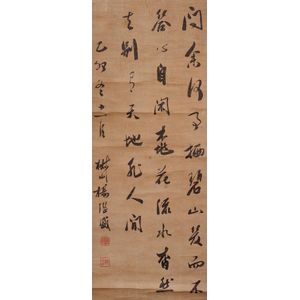 問余何事栖碧山笑而不
答心自閑桃花流水杳然
去別有天地非人間
乙卯冬十一月